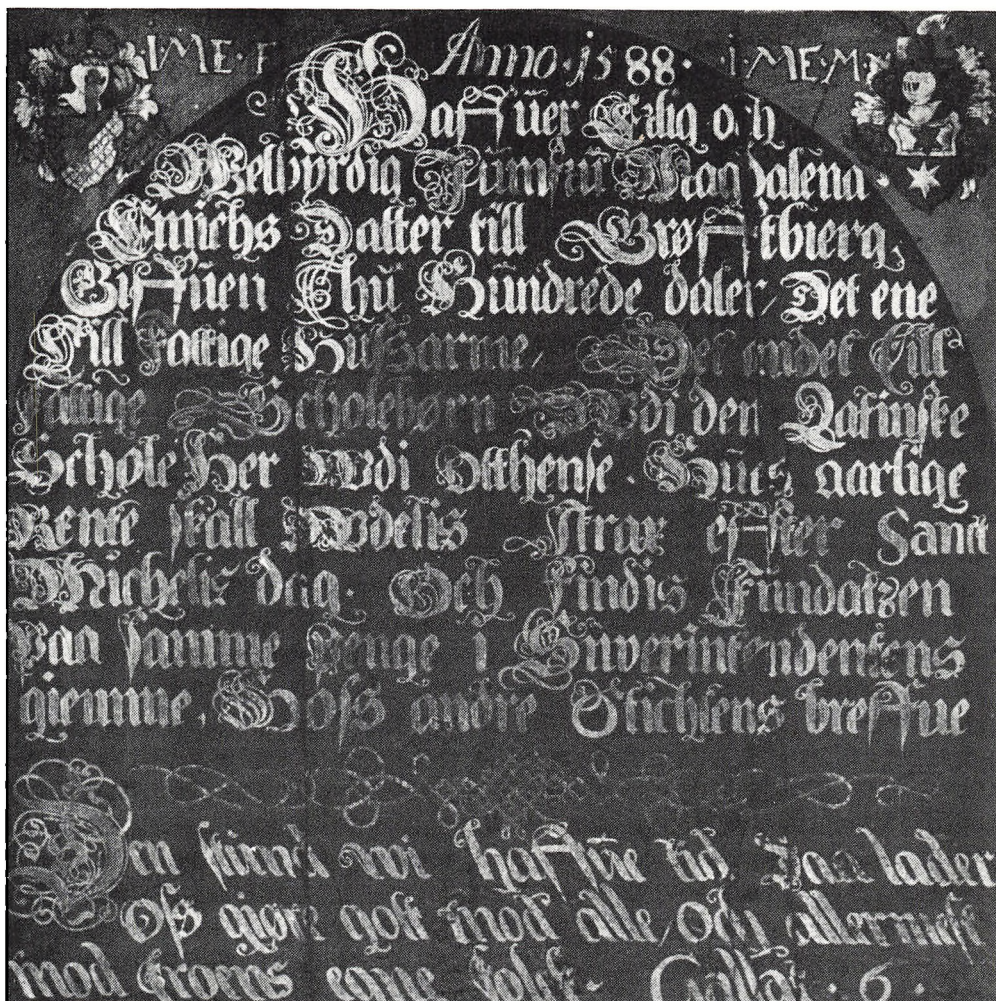 I·ME·F Anno·1588· I·MEM
Haffuer Edlig och
Wellbyrdig Jumfru Magdalena
Emichs Datter till Brofftbierg,
Giffuen Thu Hundrede daler, Det ene
Till fattige Hussarme, Det andet Till
fattige Scholebørn Udi den Latinske
Schole Her Udi Otthense. Huis aarlige
Rente skall Uddelis Strax effter Sanct
Michelis dag. Och findis Fundatzen
paa samme penge i Superintendentens
giemme, Hoss andre Stichtens breffue
Den stund wi haffue tid Daa lader
oss giøre gott mod alle, Och allermest
mod troens egne folck. Gallat·6·